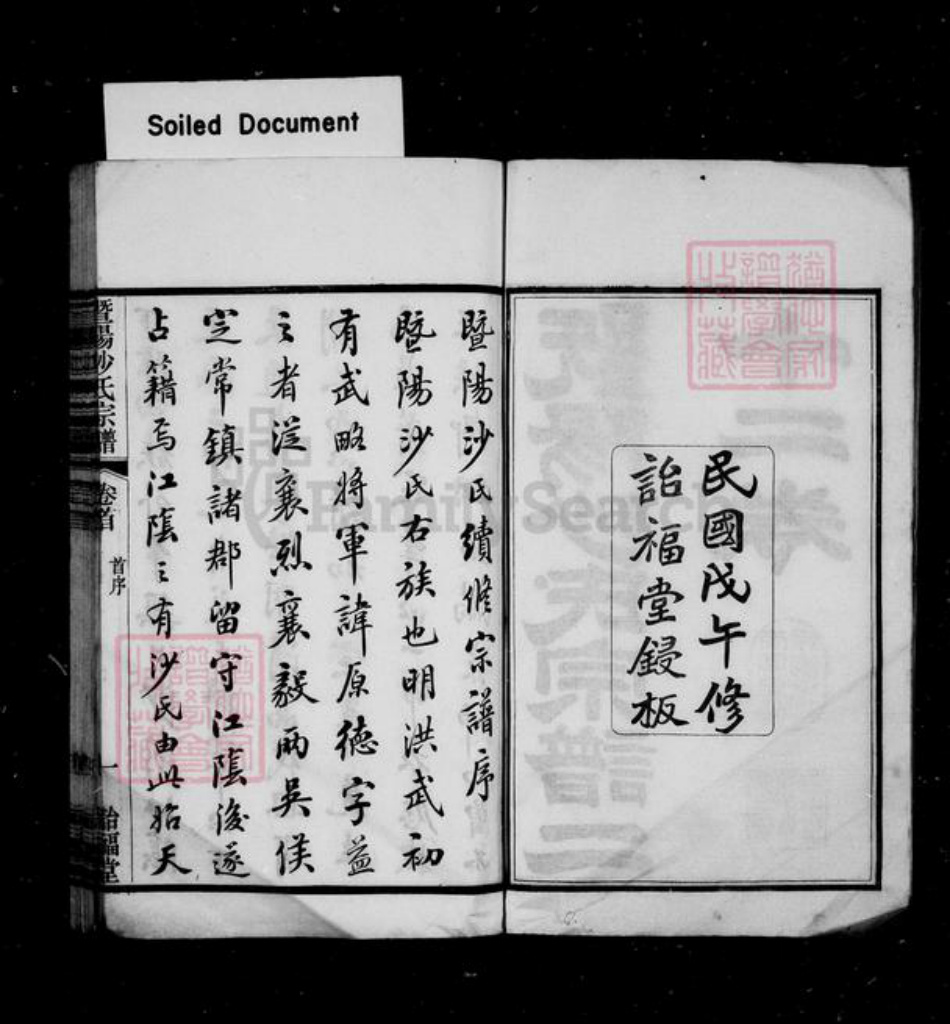 Soiled Document
民國戊午修
詒福堂鋟板
暨陽沙氏續修宗譜序
暨陽沙氏右族也明洪武初
有武略將軍諱原德字益
之者從襄烈襄毅兩吳侯
定常鎮諸郡留守江陰後遂
占籍焉江陰之有沙氏由此始天
暨陽沙氏宗譜
卷首
首序
一
詒福堂
FamilySearch
猶他家譜學會收藏
猶他家譜學會收藏